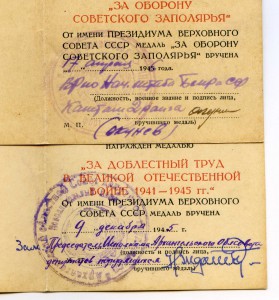 "ЗА ОБОРОНУ
СОВЕТСКОГО ЗАПОЛЯРЬЯ"
ОТ ИМЕНИ ПРЕЗИДИУМА ВЕРХОВНОГО
СОВЕТА СССР МЕДАЛЬ „ЗА ОБОРОНУ
СОВЕТСКОГО ЗАПОЛЯРЬЯ" ВРУЧЕНА
1945 года
(Должность, военное звание и подпись лица,
М. П.
вручившего медаль)
НАГРАЖДЕН МЕДАЛЬЮ
„ЗА ДОБЛЕСТНЫЙ ТРУД
В ВЕЛИКОЙ ОТЕЧЕСТВЕННОЙ
ВОЙНЕ 1941—1945 гг."
ОТ ИМЕНИ ПРЕЗИДИУМА ВЕРХОВНОГО
СОВЕТА СССР МЕДАЛЬ ВРУЧЕНА
9 декабря 1945 г.
Зам Председатель Исполкома Архангельского Облсовета
депутатов трудящихся
вручившего медаль)